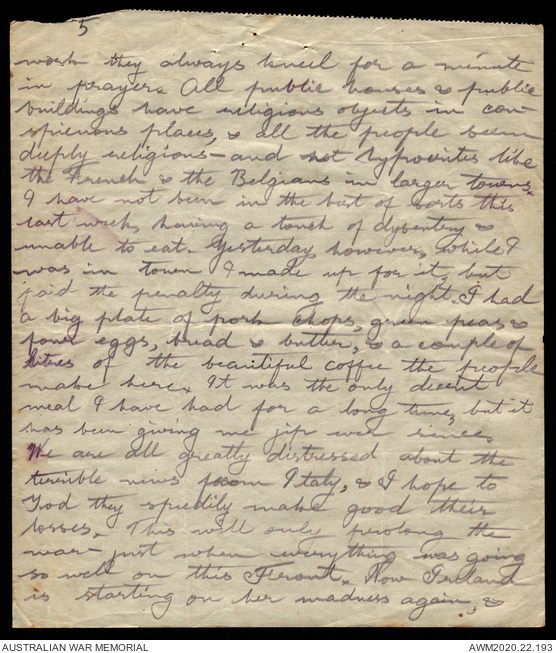 5
work they always kneel for a minute
in prayer. All public houses & public
buildings have religious objects in con-
spicuous places, & all the people seem
deeply religious - and not hypocrites like
the French & the Belgians in larger towns.
I have not been in the best of sorts this
last week, having a touch of dysentery &
unable to eat. Yesterday, however, while I
was in town I made up for it, but
paid the penalty during the night. I had
a big plate of pork chops, green peas &
four eggs, bread & butter, & a couple of
litres of the beautiful coffee the people
make here. It was the only decent
meal I have had for a long time, but it
has been giving me jip ever since.
We are all greatly distressed about the
terrible news from Italy, & I hope to
God they speedily make good their
losses. This will only prolong the
war - just when everything was going
so well on this Front. Now Ireland
is starting on her madness again, &
AUSTRALIAN WAR MEMORIAL
AWM2020.22.193